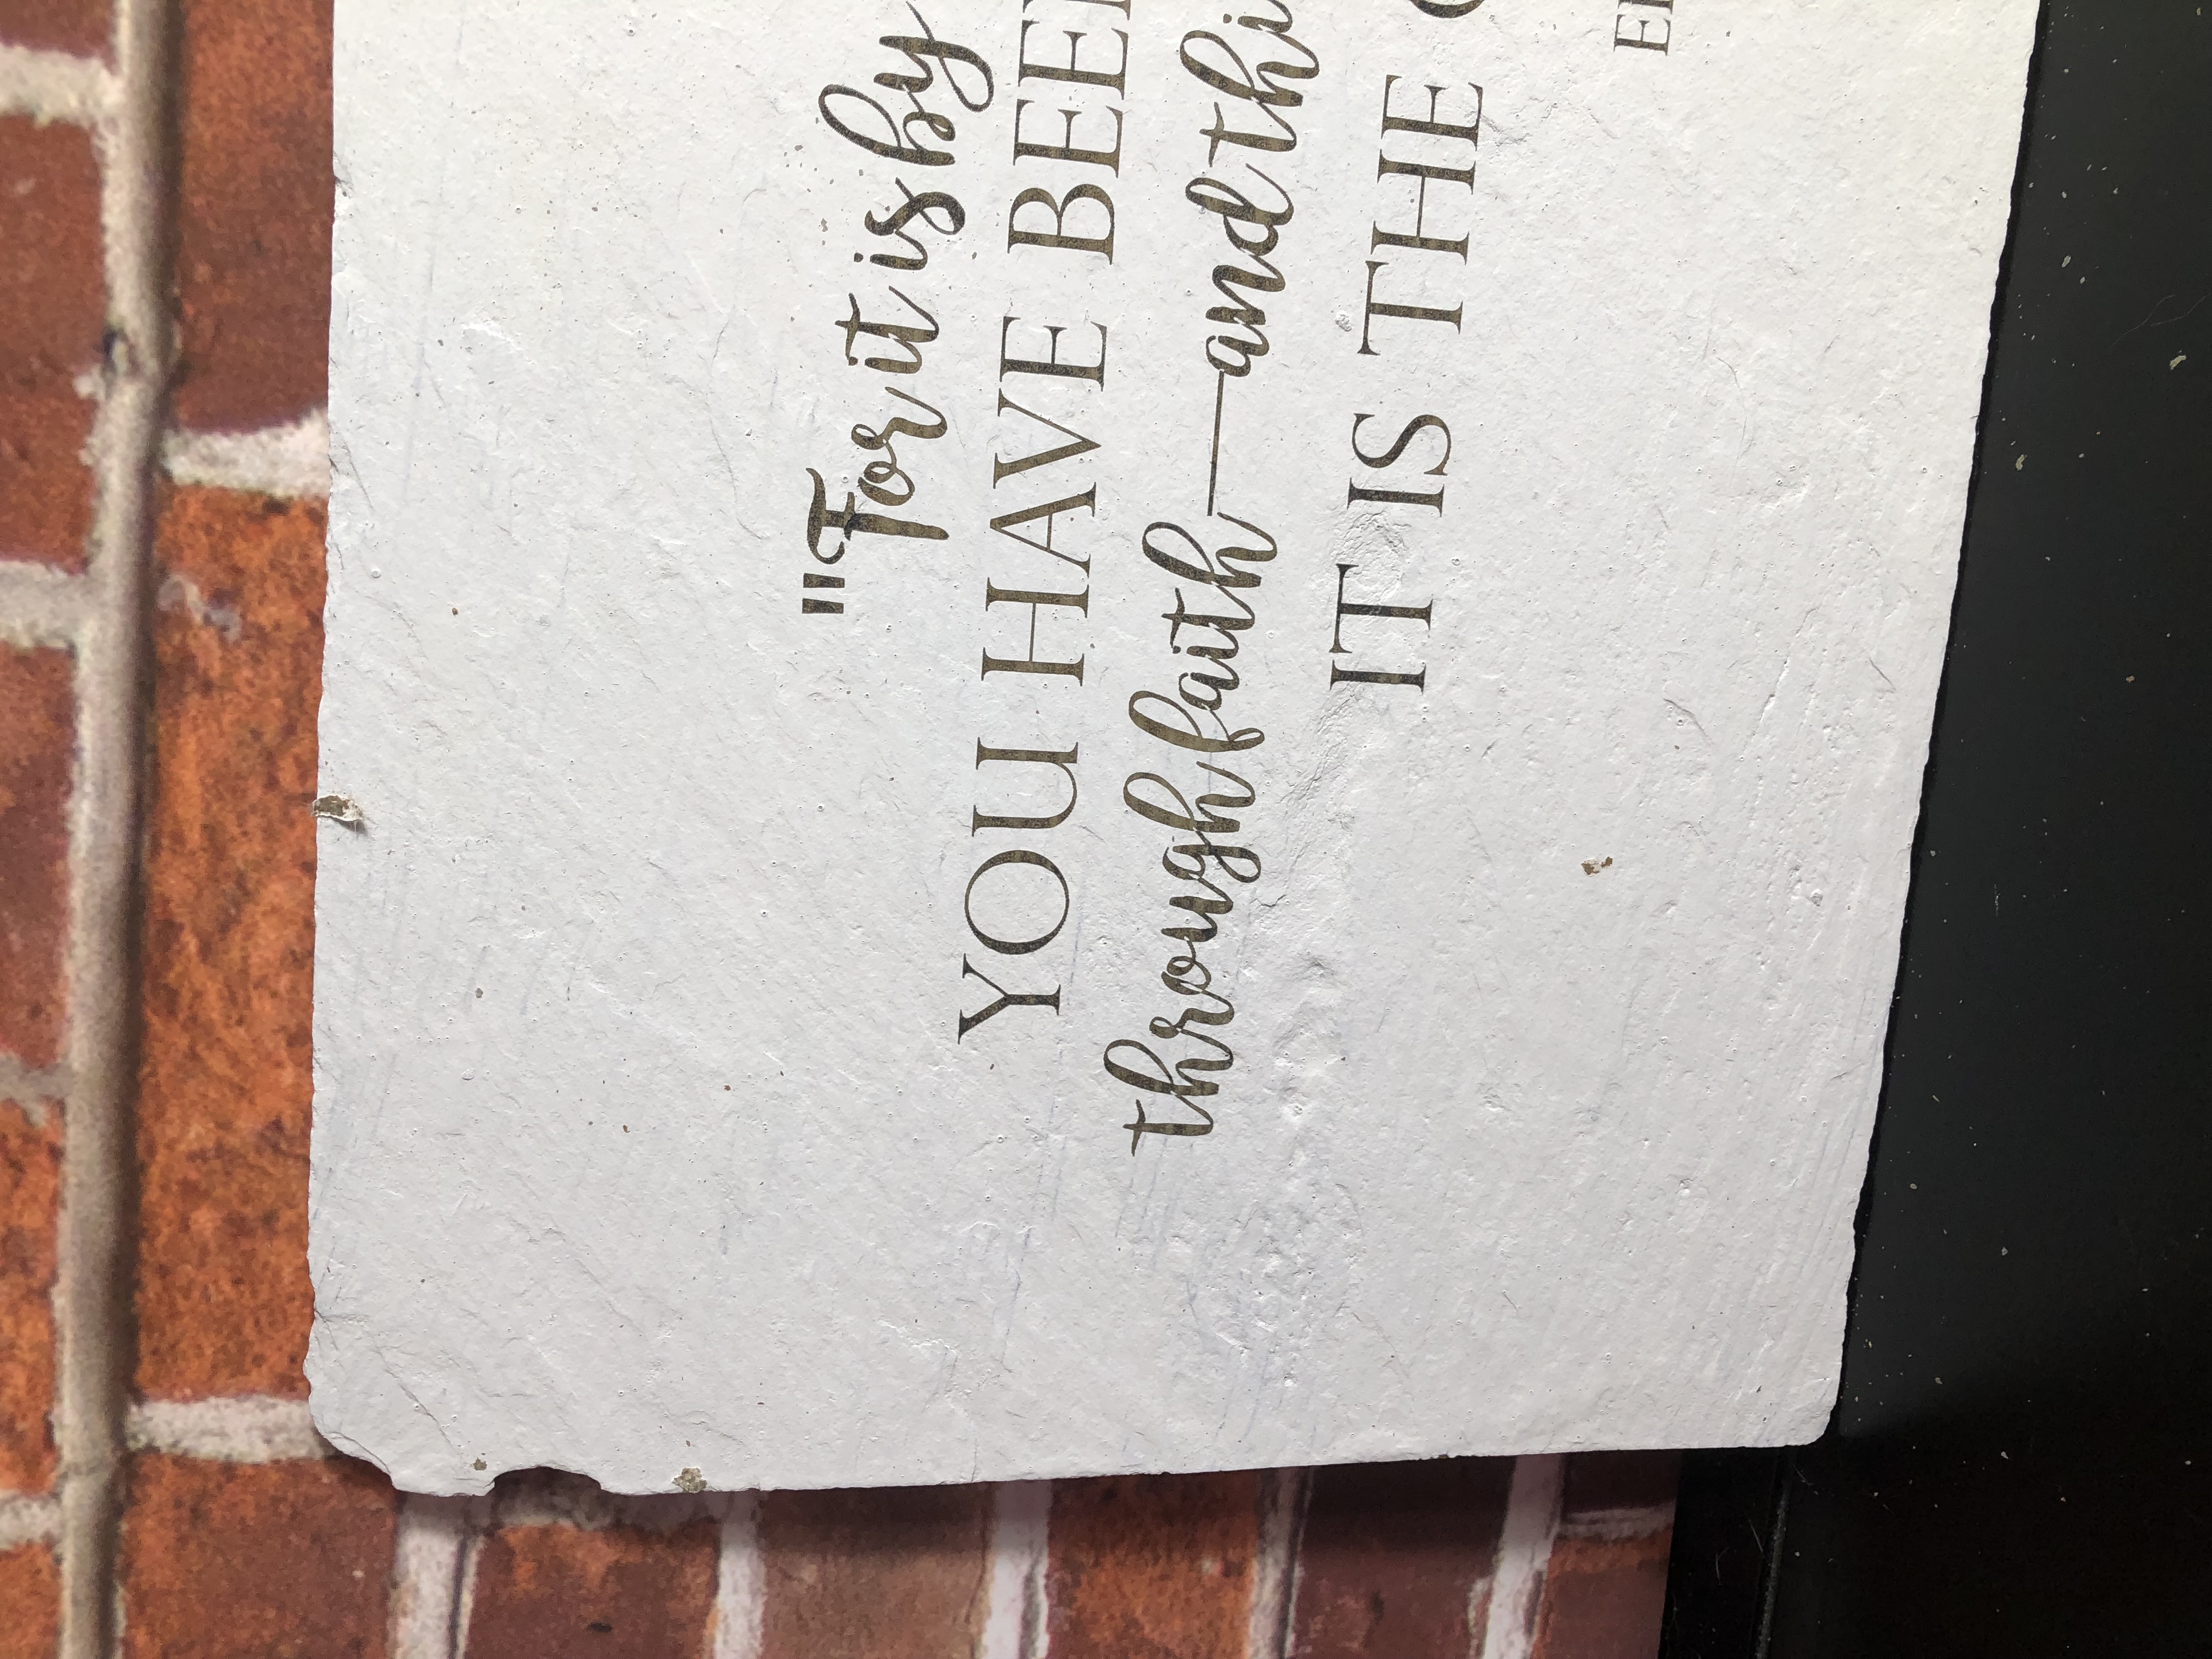 "For it is by
YOU HAVE BEE
through faith—and thi
IT IS THE